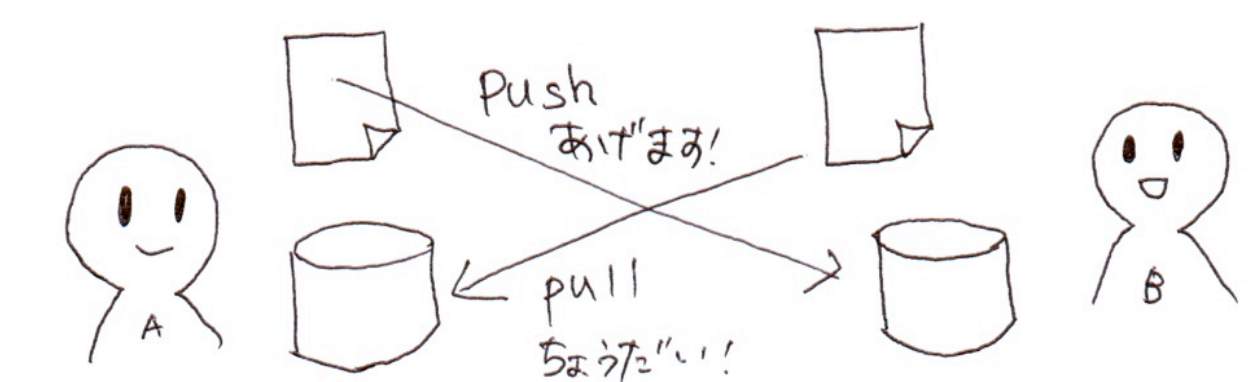 Push
あげます!
pull
ちょうだい!
A
B